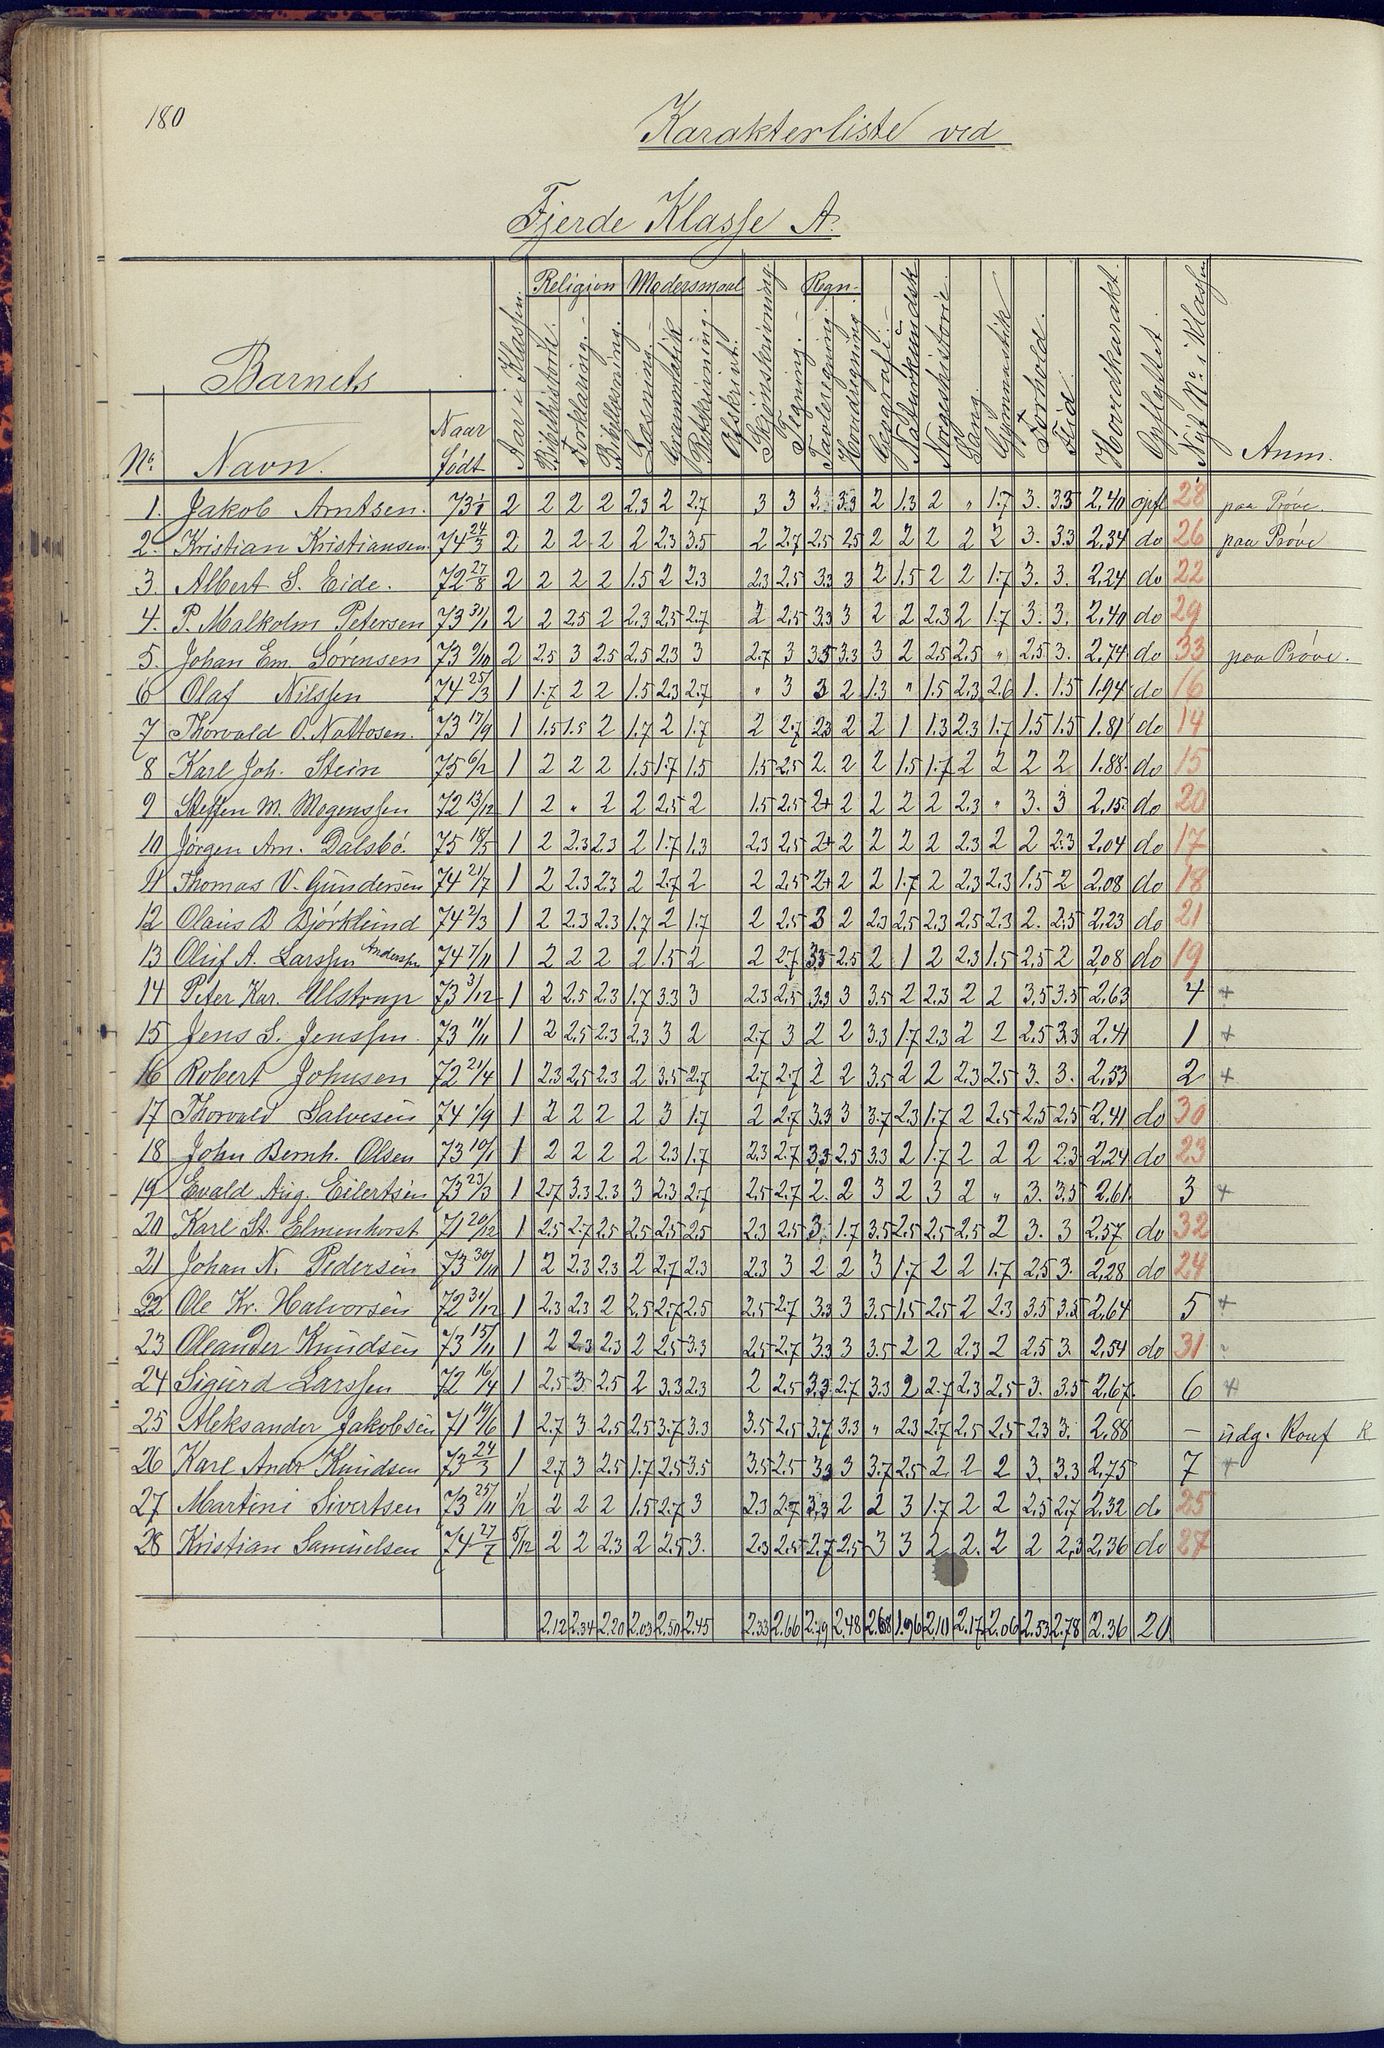 180
Karakterliste ved
Fjerde Klasse A.
Religion Modersmaal Regn-
Barnets
No. Navn. Naar født Aar i Klassen. Bibelhistorie. Forklaring. Bibellæsning. Læsning. Grammatik Retskrivning. Afskrivt. Skjönskrivning Tegning. Tavleregning. Hovedregning Geografi. Naturkundsk Norgeshistorie. Sang Gymnastik Forhold. Flid. Hovedkarakt. Opflyttet. Nyt No. i Klassen Anm.
1. Jakob Arntsen. 73 1/1 2 2 2 2 2.3 2 2.7 3 3 3. 3.3 2 1.3 2 " 1.7 3. 3.5 2.40 opfl 28 paa Pröve
2. Kristian Kristiansen. 74 24/3 2 2 2 2 2 2.3 3.5 2 2.7 2.5 2.5 2 2 2 2 2 3. 3.3 2.34 do 26 paa Pröve
3. Albert S. Eide. 72 27/8 2 2 2 2 1.5 2 2.3 2.3 2.5 3.3 3 2 1.5 2 2 1.7 3. 3. 2.24 do 22
4. P. Malkolm Petersen 73 31/1 2 2 2.5 2 2.3 2.5 2.7 2 2.5 3.3 3 2 2 2.3 2 1.7 3. 3. 2.40 do 29
5. Johan Em. Sörensen 73 9/10 2 2.5 3 2.5 2.5 2.3 3 2.7 3 3.5 3.3 3 2 2.5 2.5 " 2.5 3. 2.74 do 33 paa Pröve.
6 Olaf Nilssen 74 25/3 1 1.7 2 2 1.5 2.3 2.7 " 3 3 2 1.3 " 1.5 2.3 2.6 1. 1.5 1.94 do 16
7 Thorvald O. Nattosen. 73 17/9 1 1.5 1.5 2 1.7 2 1.7 2 2.7 2.3 2 2 1 1.3 2.3 1.7 1.5 1.5 1.81 do 14
8 Karl Joh. Stein 75 6/2 1 2 2 2 1.5 1.7 1.5 1.5 2.5 2. 2 2 1.5 1.7 2 2 2 2 1.88 do 15
9 Steffen M. Mogenssen 72 13/12 1 2 " 2 2 2.5 2 1.5 2.5 2+ 2 2 2 2 2.3 " 3. 3 2.15 do 20
10 Jörgen Am. Dalsbö. 75 18/5 1 2 2.3 2.3 2 1.7 1.3 2.3 2.5 2+ 2 2 2 2 2.3 2 2 2.3 2.04 do 17
11 Thomas V. Gundersen 74 21/7 1 2 2.3 2.3 2 2.7 2 2 2.5 2+ 2 2 1.7 2 2.3 2.3 1.5 2 2.08 do 18
12 Olaus B Björklund 74 2/3 1 2 2.3 2.3 1.7 2 1.7 2 2.5 3 2 2.3 2.5 2.3 2.5 2.3 2. 2.5 2.23 do 21
13 Oluf A. Larssen Anderssen 74 7/11 1 2 2 2 2 1.5 2 2 2.7 3.5 2.5 2 1 2 2.3 1.5 2.5 2 2.08 do 19
14 Peter Kar. Ulstrup 73 3/12 1 2 2.5 2.3 1.7 3.3 3 2.3 2.5 3.3 3 3.5 2 2.3 2 2 3.5 3.5 2.63 4 +
15 Jens S. Jenssen. 73 11/11 1 2 2.5 2.3 2.3 3 2 2.7 3 2 2 3.3 1.7 2.3 2 2 2.5 3.3 2.41 1 +
16 Robert Johnsen 72 21/4 1 2.3 2.5 2.3 2 3.5 2.7 2.7 2.7 2 2 3.5 2 2 2.3 2.5 3. 3. 2.53 2 +
17 Thorvald Salvesen 74 1/9 1 2 2 2 2 3 1.7 2 2.7 3.3 3 3.7 2.3 1.7 2 2.5 2.5 2.5 2.41 do 30
18 John Bernh. Olsen 73 10/1 1 2 2 2 2 2.3 1.7 2.3 2.7 3.3 2.5 3.3 2 1.7 2 2 2 2.3 2.24 do 23
19 Evald Aug. Eilertsen 73 23/3 1 2.7 3.3 2.3 3 2.3 2.7 2.5 2.7 2. 2 3 2 3 2 " 3. 3.5 2.61 3 +
20 Karl St. Elmenhorst 71 20/12 1 2.5 2.7 2.5 2.5 2.5 2.5 2.3 2.5 3 1.7 3.5 2.5 2.5 2.5 2 3. 3 2.57 do 32
21 Johan N. Pedersen 73 30/10 1 2 2.3 2.3 2 2.7 2.3 2.3 3 2 2 3 1.7 2 2 1.7 2.5 3. 2.28 do 24
22 Ole Kr. Halvorsen 72 31/12 1 2.3 2.3 2 2.5 2.7 2.5 2.5 2.7 3.3 3 3.5 1.5 2.5 2 2.3 3.5 3.5 2.64 5 +
23 Oleander Knudsen 73 15/11 1 2 2.3 2.3 2 2.5 3.3 2.5 2.7 3.3 3 3.5 2 2 2.3 2 2.5 3. 2.54 do 31 ?
24 Sigurd Larssen 72 16/4 1 2.5 3. 2.5 2 3.3 2.3 2 2.5 3.3 2.7 3.3 2 2.7 2.3 2.5 3. 3.5 2.67 6 +
25 Aleksander Jakobsen 71 19/6 1 2.7 3 2.5 2.5 3.7 3.3 3.5 2.5 3.7 3.3 " 2.3 2.7 2.5 2.5 2.3 3. 2.88 — udg. Konf K
26 Karl Andr Knudsen 73 24/3 1 2.7 3 2.5 1.7 2.5 3.5 3.5 2.5 3.3 3 3.7 2.5 2. 2 2 3. 3.3 2.75 7 +
27 Martini Sivertsen 73 25/11 1/2 2 2 2 1.5 2.7 3 2.3 2.7 3.3 2 2 3 1.7 2 2 2.5 2.7 2.32 do 25
28 Kristian Samuelsen 74 27/7 5/12 2 2 2.3 2 2.5 3. 2.3 2.5 2.7 2.5 3 3 2 2. 2 2 2.3 2.36 do 27
2.12 2.34 2.20 2.03 2.50 2.45 2.33 2.66 2.79 2.48 2.68 1.96 2.10 2.17 2.06 2.53 2.78 2.36 20